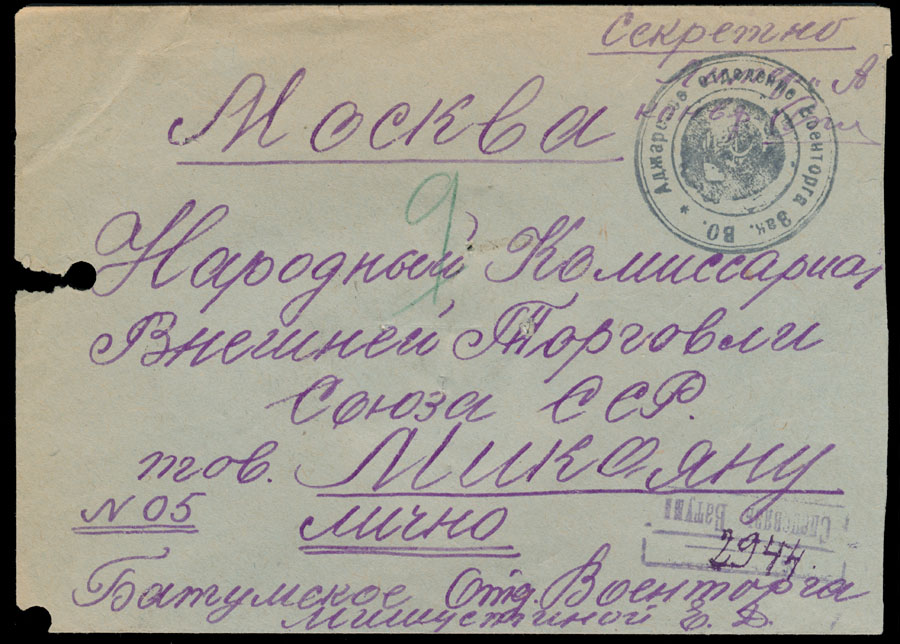 Секретно
А
Москва
Аджарское отделение Военторга Зак. ВО. *
9
Народный Комиссариа
Внешней Торговли
Союза ССР.
тов. Микояну
N 05 лично
Спецсвязь Батуми
2944
Батумское Отд. Военторга
Мишустиной Е. Д.